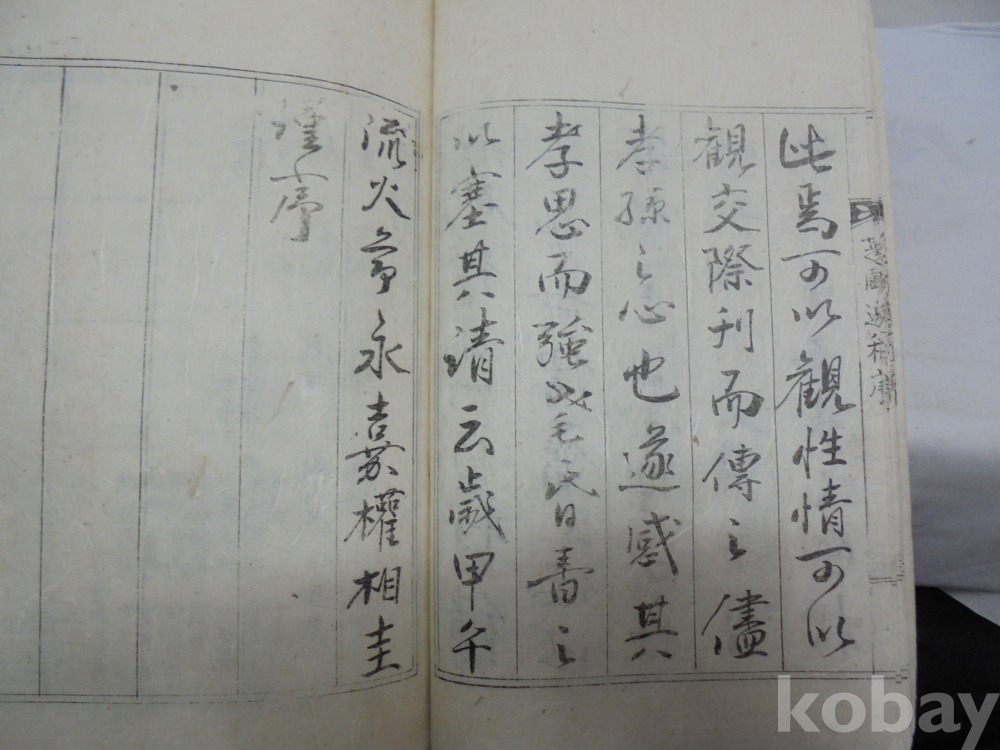 此焉可以觀性情可以
觀交際刊而傳之儘
孝孫之心也遂感其
孝思而強 毛氏日書之
以塞其請云歲甲午
流火 永嘉權相圭
謹序
遺稿序
kobay